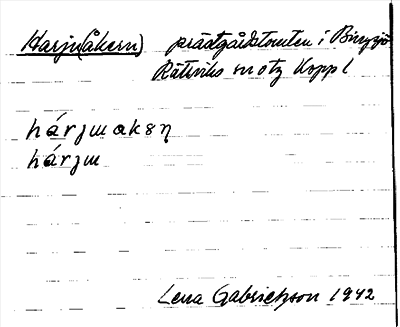 Harju(åkern) prästgårdstomten i Bingsjö
Rättviks sn otz Kopp l
hárjɯ akən
hárjɯ
Lena Gabrielsson 1942